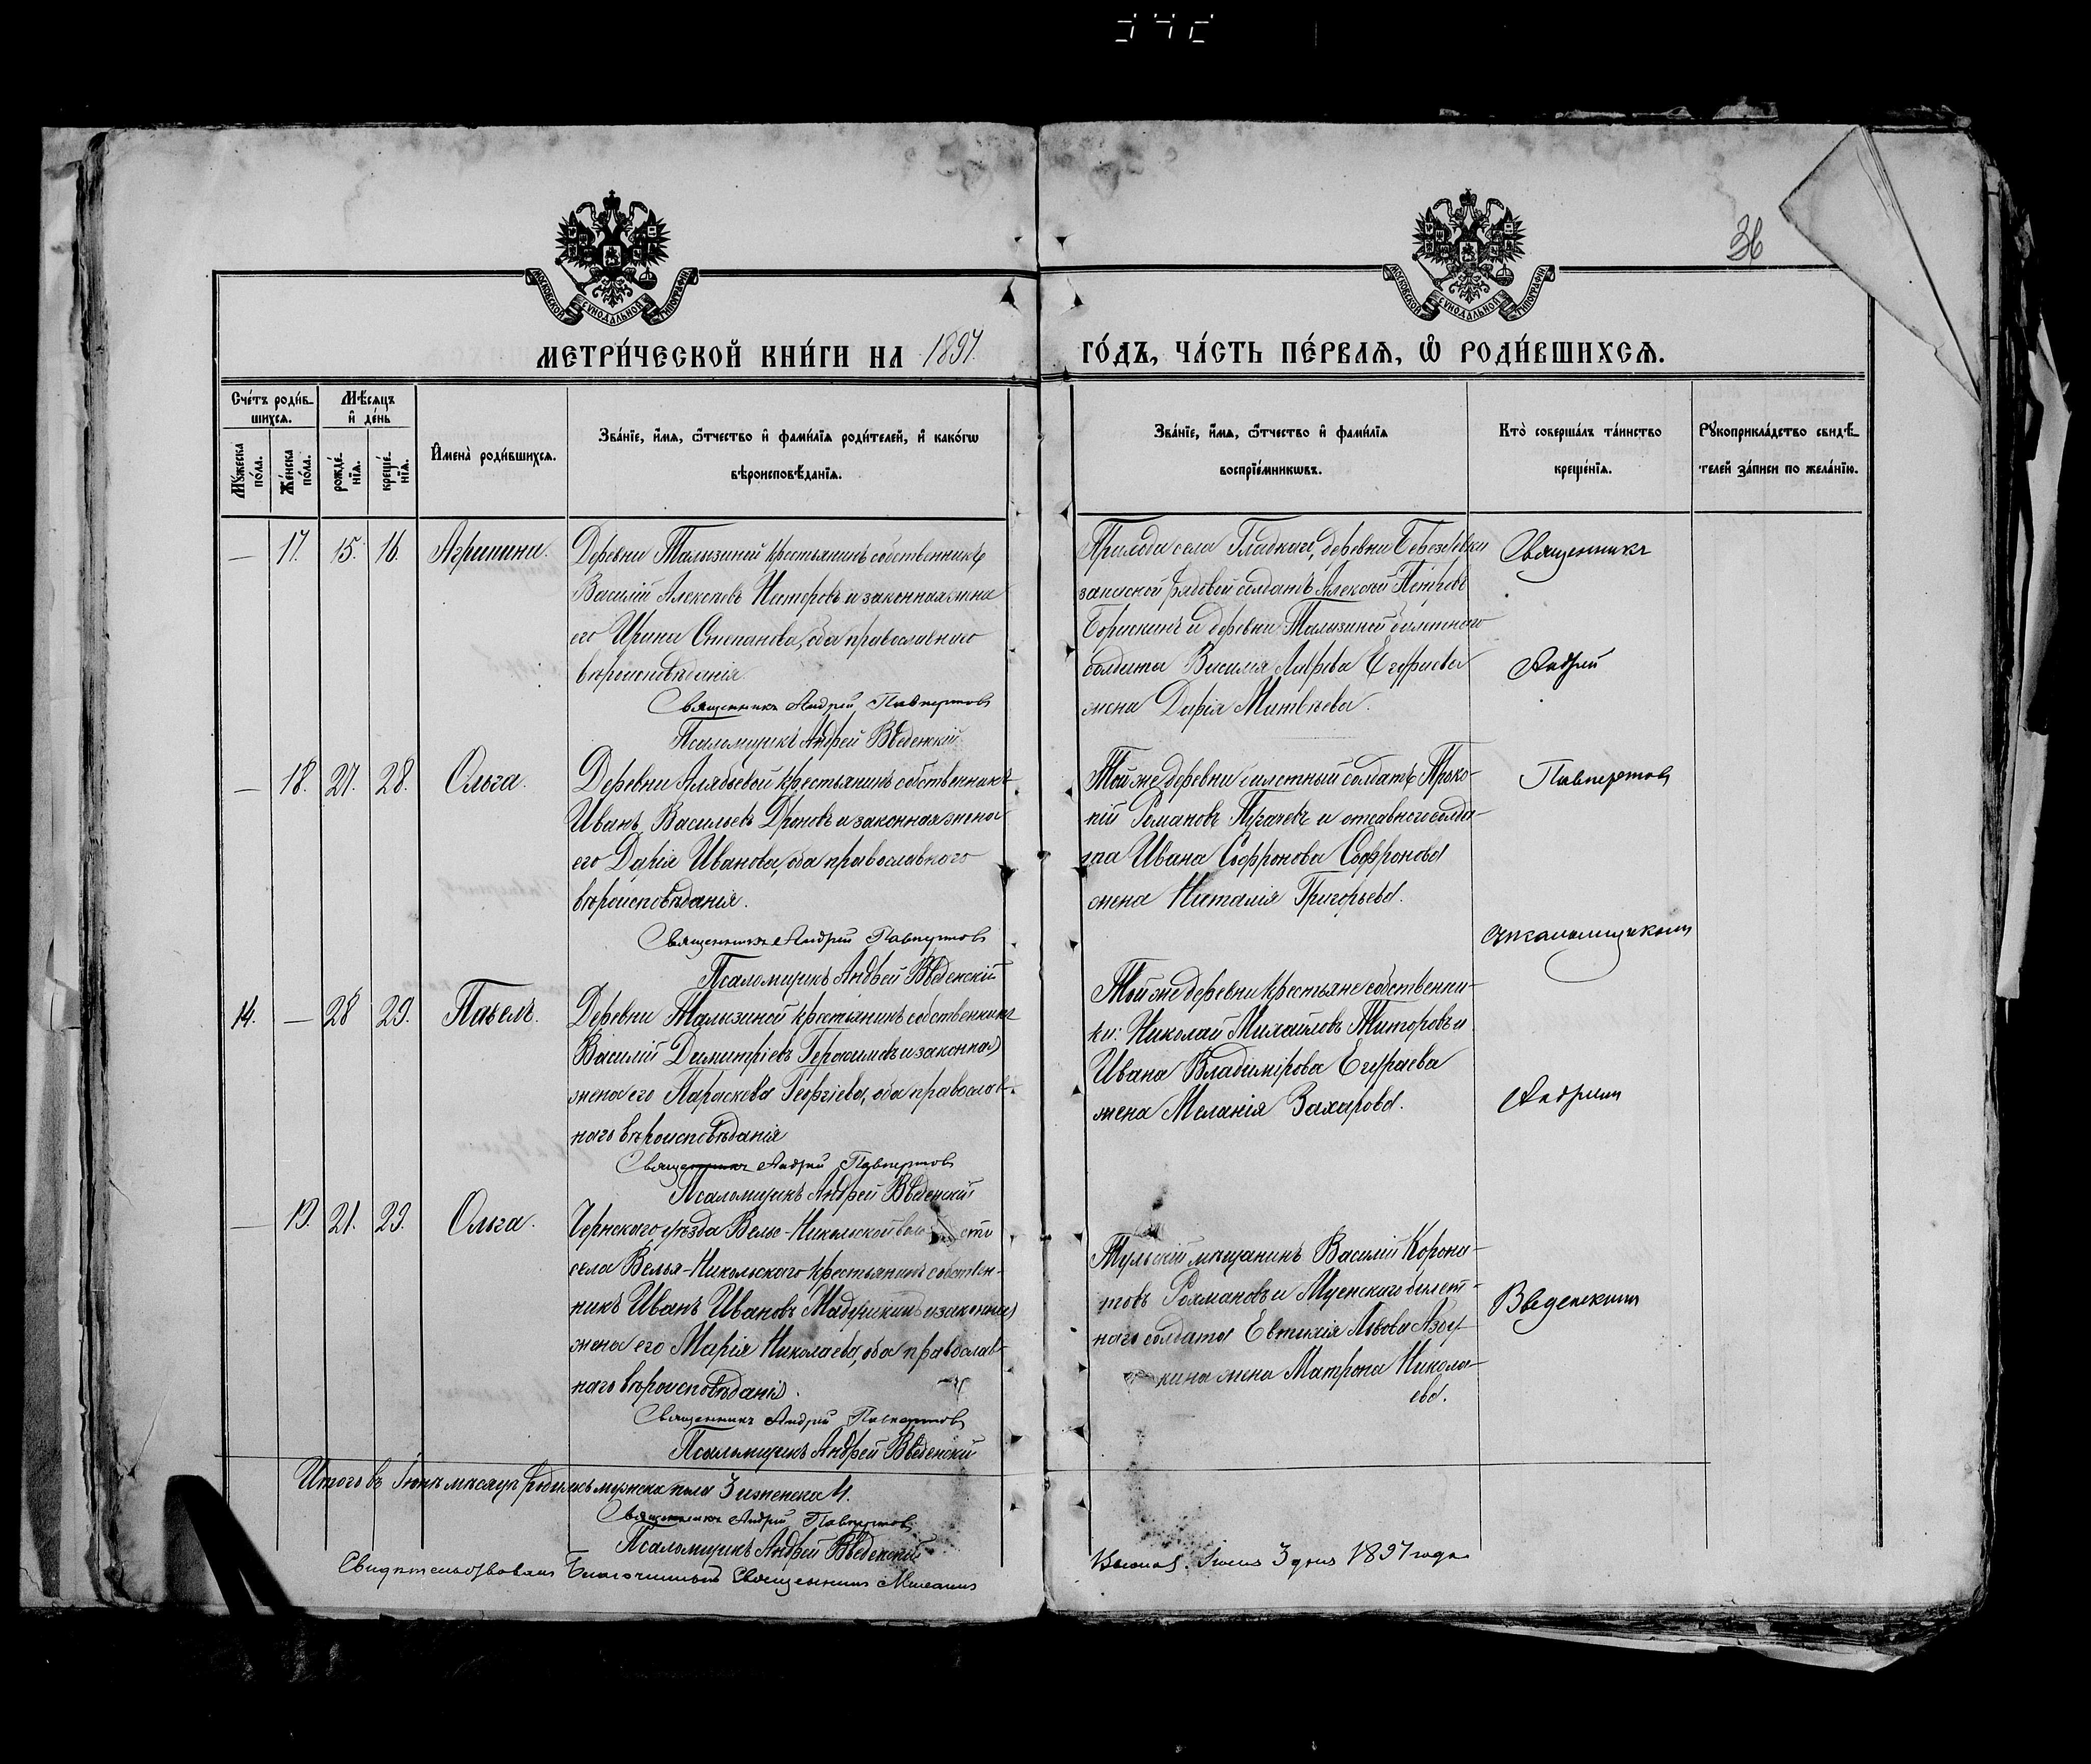 36
МОСКОВСКОЙ СУНОДАЛЬНОЙ ТИПОГРАФІИ
МОСКОВСКОЙ СУНОДАЛЬНОЙ ТИПОГРАФІИ
МЕТРИ́ЧЕСКОЙ КНИ́ГИ НА 1897
ГО́ДЪ, ЧА́СТЬ ПЕ́РВАЯ, Ѡ РОДИ́ВШИХСЯ.
Сче́тъ роди́в-
шихся.
Мѣ́сяцъ
и де́нь
Му́жеска по́ла.
Же́нска по́ла.
рожде́-
нія.
креще́-
нія.
Имена̀ роди́вшихся.
Зва́ніе, и́мя, ѻ́тчество и фами́лія роди́телей, и како́гѡ
вѣроисповѣ́данія.
Зва́ніе, и́мя, ѻ́тчество и фами́лія
воспріе́мникѡвъ.
Кто̀ соверша́лъ та́инство
креще́нія.
Рукоприкла́дство свидѣ́-
телей за́писи по жела́нію.
— 17. 15. 16. Агрипина.
Деревни Талызиной крестьянинъ собственникъ
Василій Алексѣевъ Титоровъ и законная жена
его Ирина Степанова, оба православнаго
вѣроисповѣданія.
Священникъ Андрей Павпертовъ
Псаломщикъ Андрей Введенскій
Прихода села Гладкаго, деревни Березовки
запасной рядовой солдатъ Алексѣй Петровъ
Борискинъ и деревни Талызиной билетнаго
солдата Василія Егураева
жена Дарія Матвѣева.
Священникъ
Андрей
Павпертовъ
съ псаломщикомъ
Андреемъ
Введенскимъ
— 18. 27. 28. Ольга.
Деревни Алябьевой крестьянинъ собственникъ
Иванъ Васильевъ Дроновъ и законная жена
его Дарія Иванова, оба православнаго
вѣроисповѣданія.
Священникъ Андрей Павпертовъ
Псаломщикъ Андрей Введенскій
Той же деревни билетный солдатъ Проко-
пій Романовъ Пугачевъ и отставнаго солда-
та Ивана Софронова Софронова
жена Наталія Григорьева.
14. — 28 29. Павелъ.
Деревни Талызиной крестьянинъ собственникъ
Василій Димитріевъ Герасимовъ и законная
жена его Параскева Георгіева, оба православ-
наго вѣроисповѣданія
Священникъ Андрей Павпертовъ
Псаломщикъ Андрей Введенскій
Той же деревни крестьяне собственни-
ки: Николай Михайловъ Титоровъ и
Ивана Владимірова Егураева
жена Меланія Захарова.
— 19. 21. 29. Ольга.
Чернскаго уѣзда Велье-Никольской волости
села Велья-Никольскаго крестьянинъ собствен-
никъ Иванъ Ивановъ и законная
жена его Марія Николаева, оба православ-
наго вѣроисповѣданія.
Священникъ Андрей Павпертовъ
Псаломщикъ Андрей Введенскій
Тульскій мѣщанинъ Василій Корона-
товъ и Мценскаго билет-
наго солдата Евтихія Львова
кина жена Матрона Никола-
ева.
Итого въ Іюнѣ мѣсяцѣ родилось мужска пола 3 и женска 4.
Священникъ Андрей Павпертовъ
Псаломщикъ Андрей Введенскій
Свидѣтельствовалъ Благочинный Священникъ Михаилъ
Іюля 3 дня 1897 года